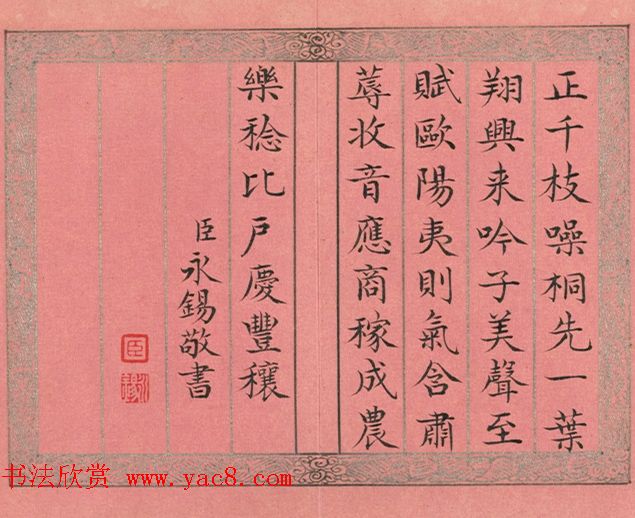 正千枝噪桐先一葉
翔興来吟子美聲至
賦歐陽夷則氣含肅
蓐收音應商稼成農
樂稔比戶慶豐穰
臣永錫敬書
臣
永錫
书法欣赏 www.yac8.com